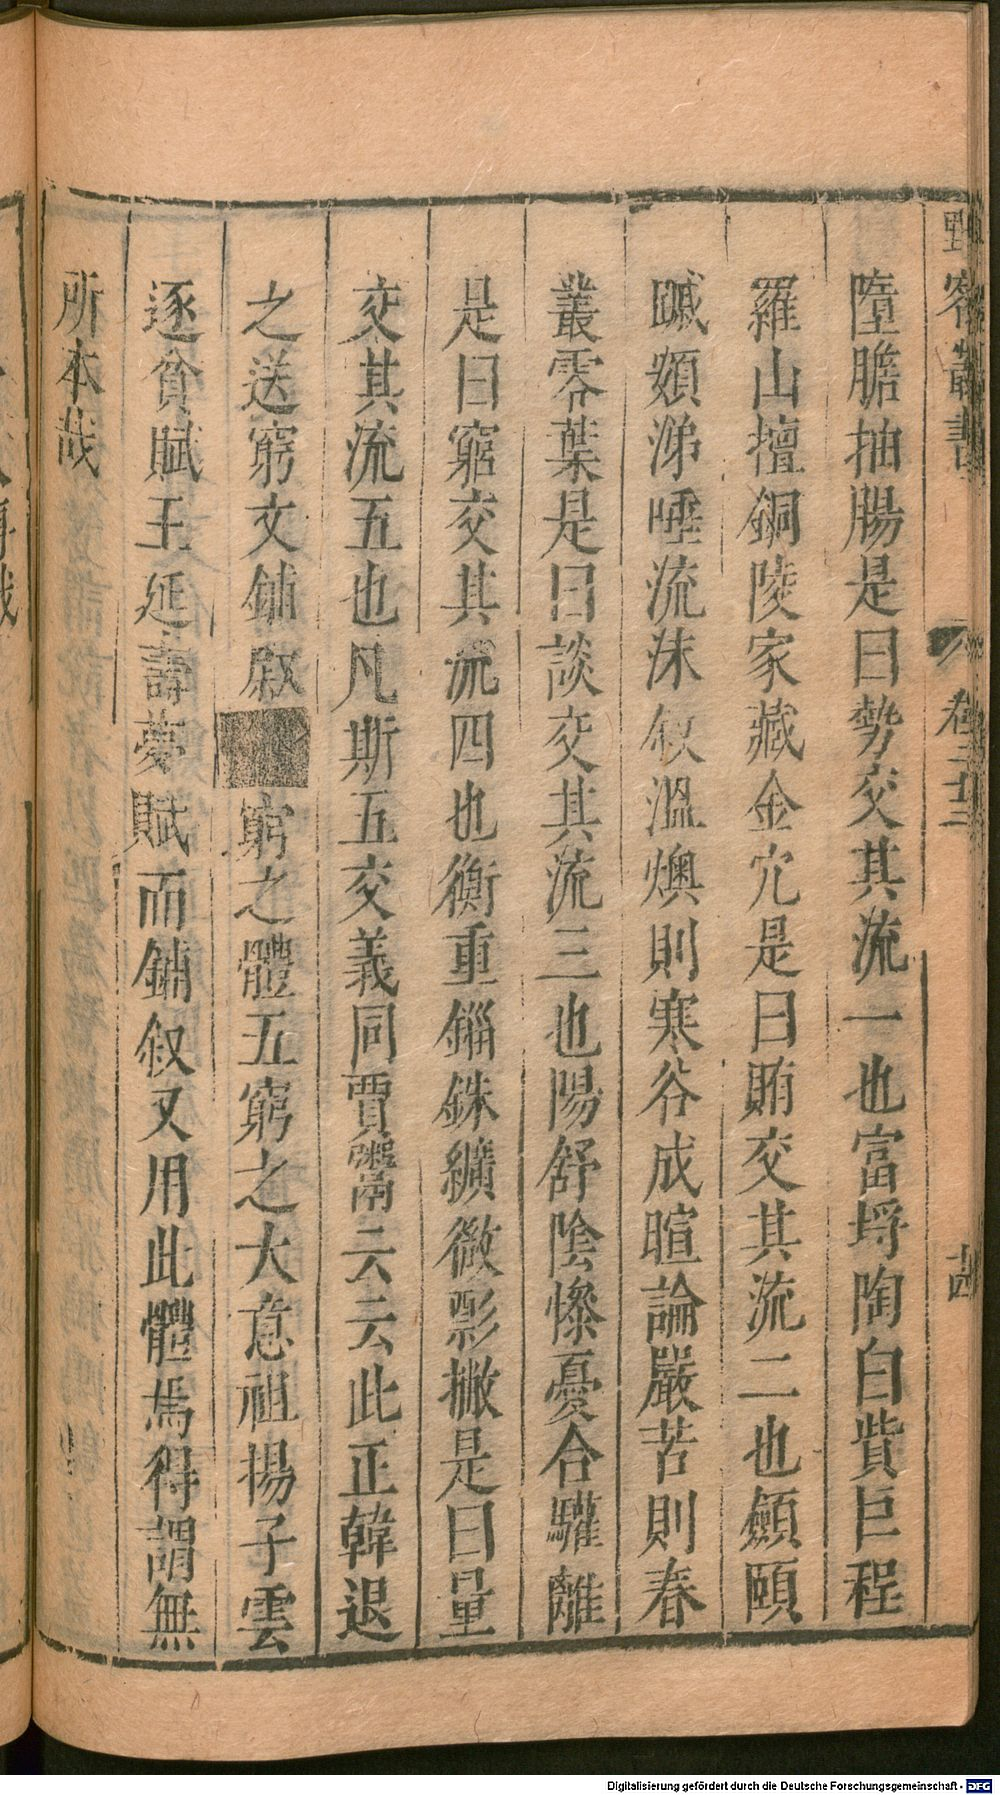 野客叢書 卷二十三 十四
墮膽抽腸是曰勢交其流一也富埒陶白貲巨程
羅山擅銅陵家藏金穴是曰賄交其流二也顩頤
蹙頞涕唾流沫叙溫燠則寒谷成暄論嚴苦則春
叢零葉是曰談交其流三也陽舒陰慘憂合驩離
是曰窮交其流四也衡重錙銖纊微影撇是曰量
交其流五也凡斯五交義同賈鬻云云此正韓退
之送窮文鋪叙 窮之體五窮之大意祖揚子雲
逐貧賦王延壽夢賦而鋪叙又用此體焉得謂無
所本哉
Digitalisierung gefördert durch die Deutsche Forschungsgemeinschaft - DFG